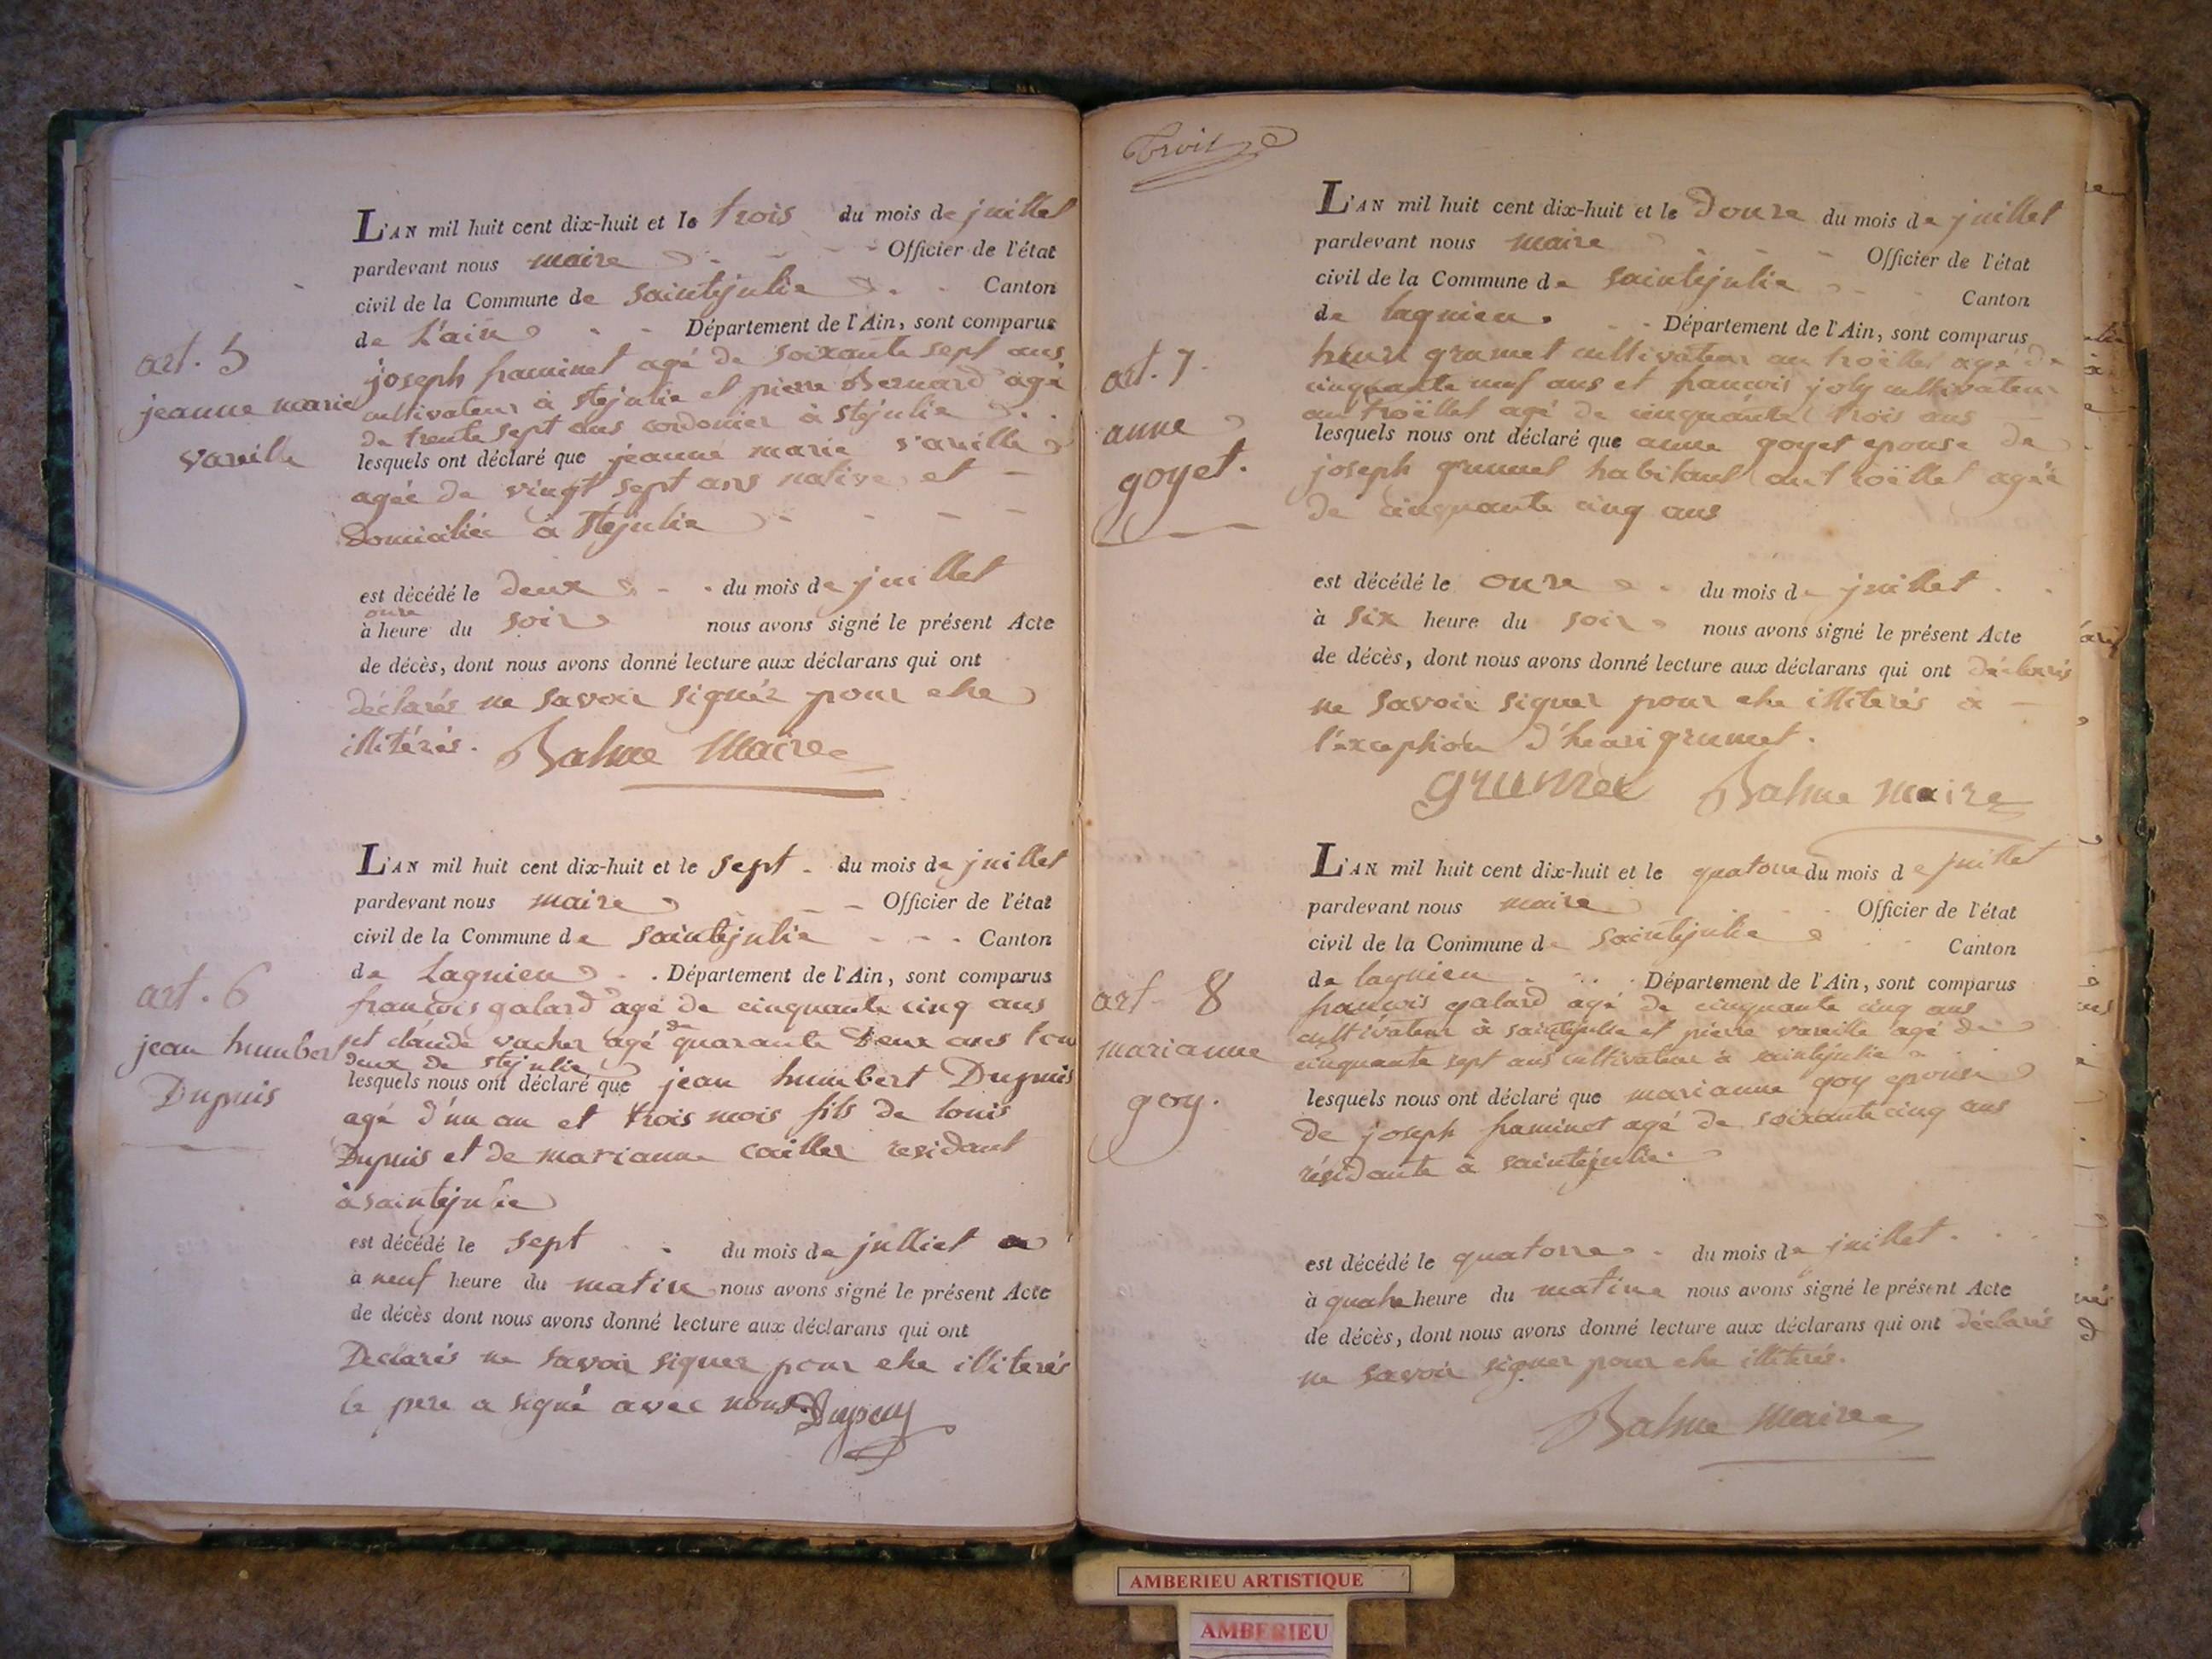 L'AN mil huit cent dix-huit et le trois du mois de juillet
pardevant nous maire Officier de l'état
civil de la Commune de saintejulie Canton
de L'ain Département de l'Ain, sont comparus
art. 5
jeanne marie
vareille
joseph framinet agé de soixante sept ans
cultivateur à stejulie et pierre Bernard agé
de trente sept ans cordonier à stejulie
lesquels ont déclaré que jeanne marie vareille
agée de vingt sept ans native et
Domiciliée à stejulie
est décédé le deux du mois de juillet
onze
à heure du soir nous avons signé le présent Acte
de décès, dont nous avons donné lecture aux déclarans qui ont
déclarés ne savoir signér pour etre
illitérés. Balme Maire
L'AN mil huit cent dix-huit et le sept du mois de juillet
pardevant nous maire Officier de l'état
civil de la Commune de saintejulie Canton
de Lagnieu Département de l'Ain, sont comparus
art. 6
jean humbert
Dupuis
francois galard agé de cinquante cinq ans
et claude vacher agé de quarante Deux ans tou
deux de stejulie
lesquels nous ont déclaré que jean humbert Dupuis
agé d'un an et trois mois fils de louis
Dupuis et de marianne cailler residant
à saintejulie
est décédé le sept du mois de julliet
a neuf heure du matin nous avons signé le présent Acte
de décès dont nous avons donné lecture aux déclarans qui ont
Declarés ne savoir signer pour etre illiterés
le pere a signé avec nous. Dupuy
Trois
L'AN mil huit cent dix-huit et le Douze du mois de juillet
pardevant nous maire Officier de l'état
civil de la Commune de saintejulie Canton
de lagnieu. Département de l'Ain, sont comparus
art. 7.
anne
goyet.
henri grumet cultivateur au troëllet agé de
cinquante neuf ans et francois joly cultivateur
au troëllet agé de cinquante trois ans
lesquels nous ont déclaré que anne goyet epouse de
joseph grumet habitant au troëllet agée
de cinquante cinq ans
est décédé le onze du mois de juillet
à six heure du soir nous avons signé le présent Acte
de décès, dont nous avons donné lecture aux déclarans qui ont déclarés
ne savoir signer pour etre illiterés à
l'éxception d'henri grumet.
grumet Balme maire
L'AN mil huit cent dix-huit et le quatorze du mois de juillet
pardevant nous maire Officier de l'état
civil de la Commune de saintejulie Canton
de lagnieu Département de l'Ain, sont comparus
art. 8
marianne
goy.
francois galard agé de cinquante cinq ans
cultivateur à saintejulie et pierre vareille agé de
cinquante sept ans cultivateur à saintejulie
lesquels nous ont déclaré que marianne goy epouse
de joseph framinet agé de soixante cinq ans
résidante à saintejulie.
est décédé le quatorze du mois de juillet.
à quatre heure du matin nous avons signé le présent Acte
de décès, dont nous avons donné lecture aux déclarans qui ont déclarés
ne savoir signer pour etre illiterés.
Balme Maire
AMBERIEU ARTISTIQUE
AMBERIEU